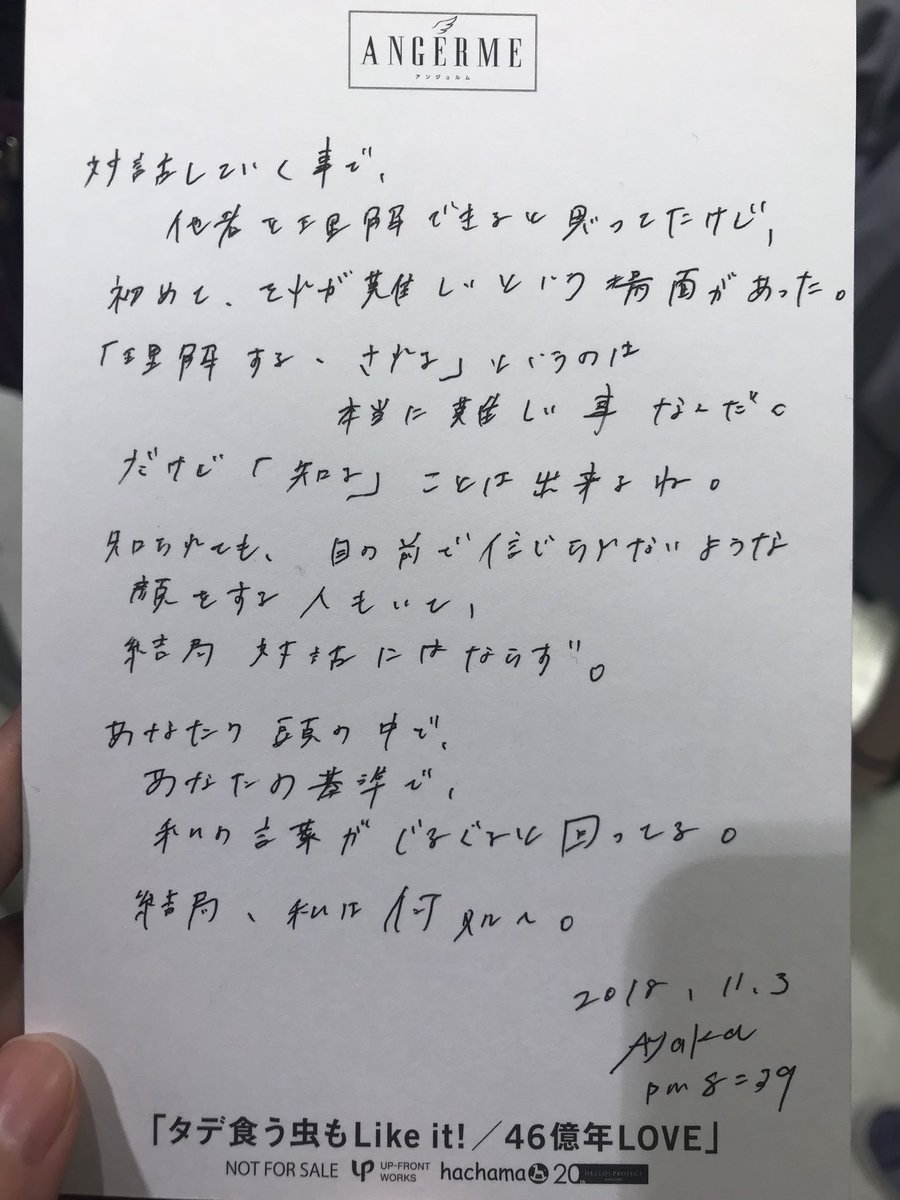 ANGERME
アンジュルム
対話していく事で、
他者を理解できると思ってたけど、
初めて、それが難しいという場面があった。
「理解する、される」というのは
本当に難しい事なんだ。
だけど「知る」ことは出来るね。
知られても、目の前で信じられないような
顔をする人もいて、
結局 対話にはならず。
あなたの頭の中で、
あなたの基準で、
私の言葉がぐるぐると回ってる。
結局、私は何
2018.11.3
Ayaka
pm 8=39
「タデ食う虫もLike it!／46億年LOVE」
NOT FOR SALE UP-FRONT WORKS hachama 20th HELLO! PROJECT